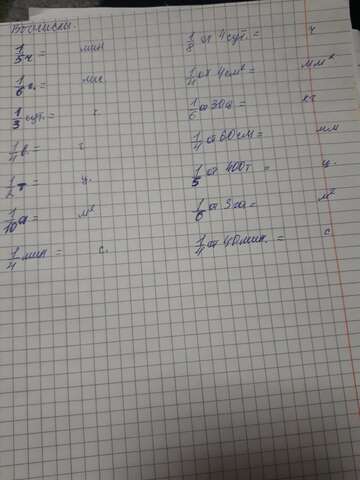 Вычисли.
1/5 ч = мин
1/6 г. = мес
1/3 сут. = г
1/4 в. = г
1/2 т = ц.
1/10 а = м²
1/4 мин = с.
1/8 от 4 сут. = ч
1/4 от 4 см² = мм²
1/6 от 30 ц = кг
1/4 от 60 см = мм
1/5 от 400 т = ц.
1/6 от 3 а = м²
1/4 от 40 мин. = с